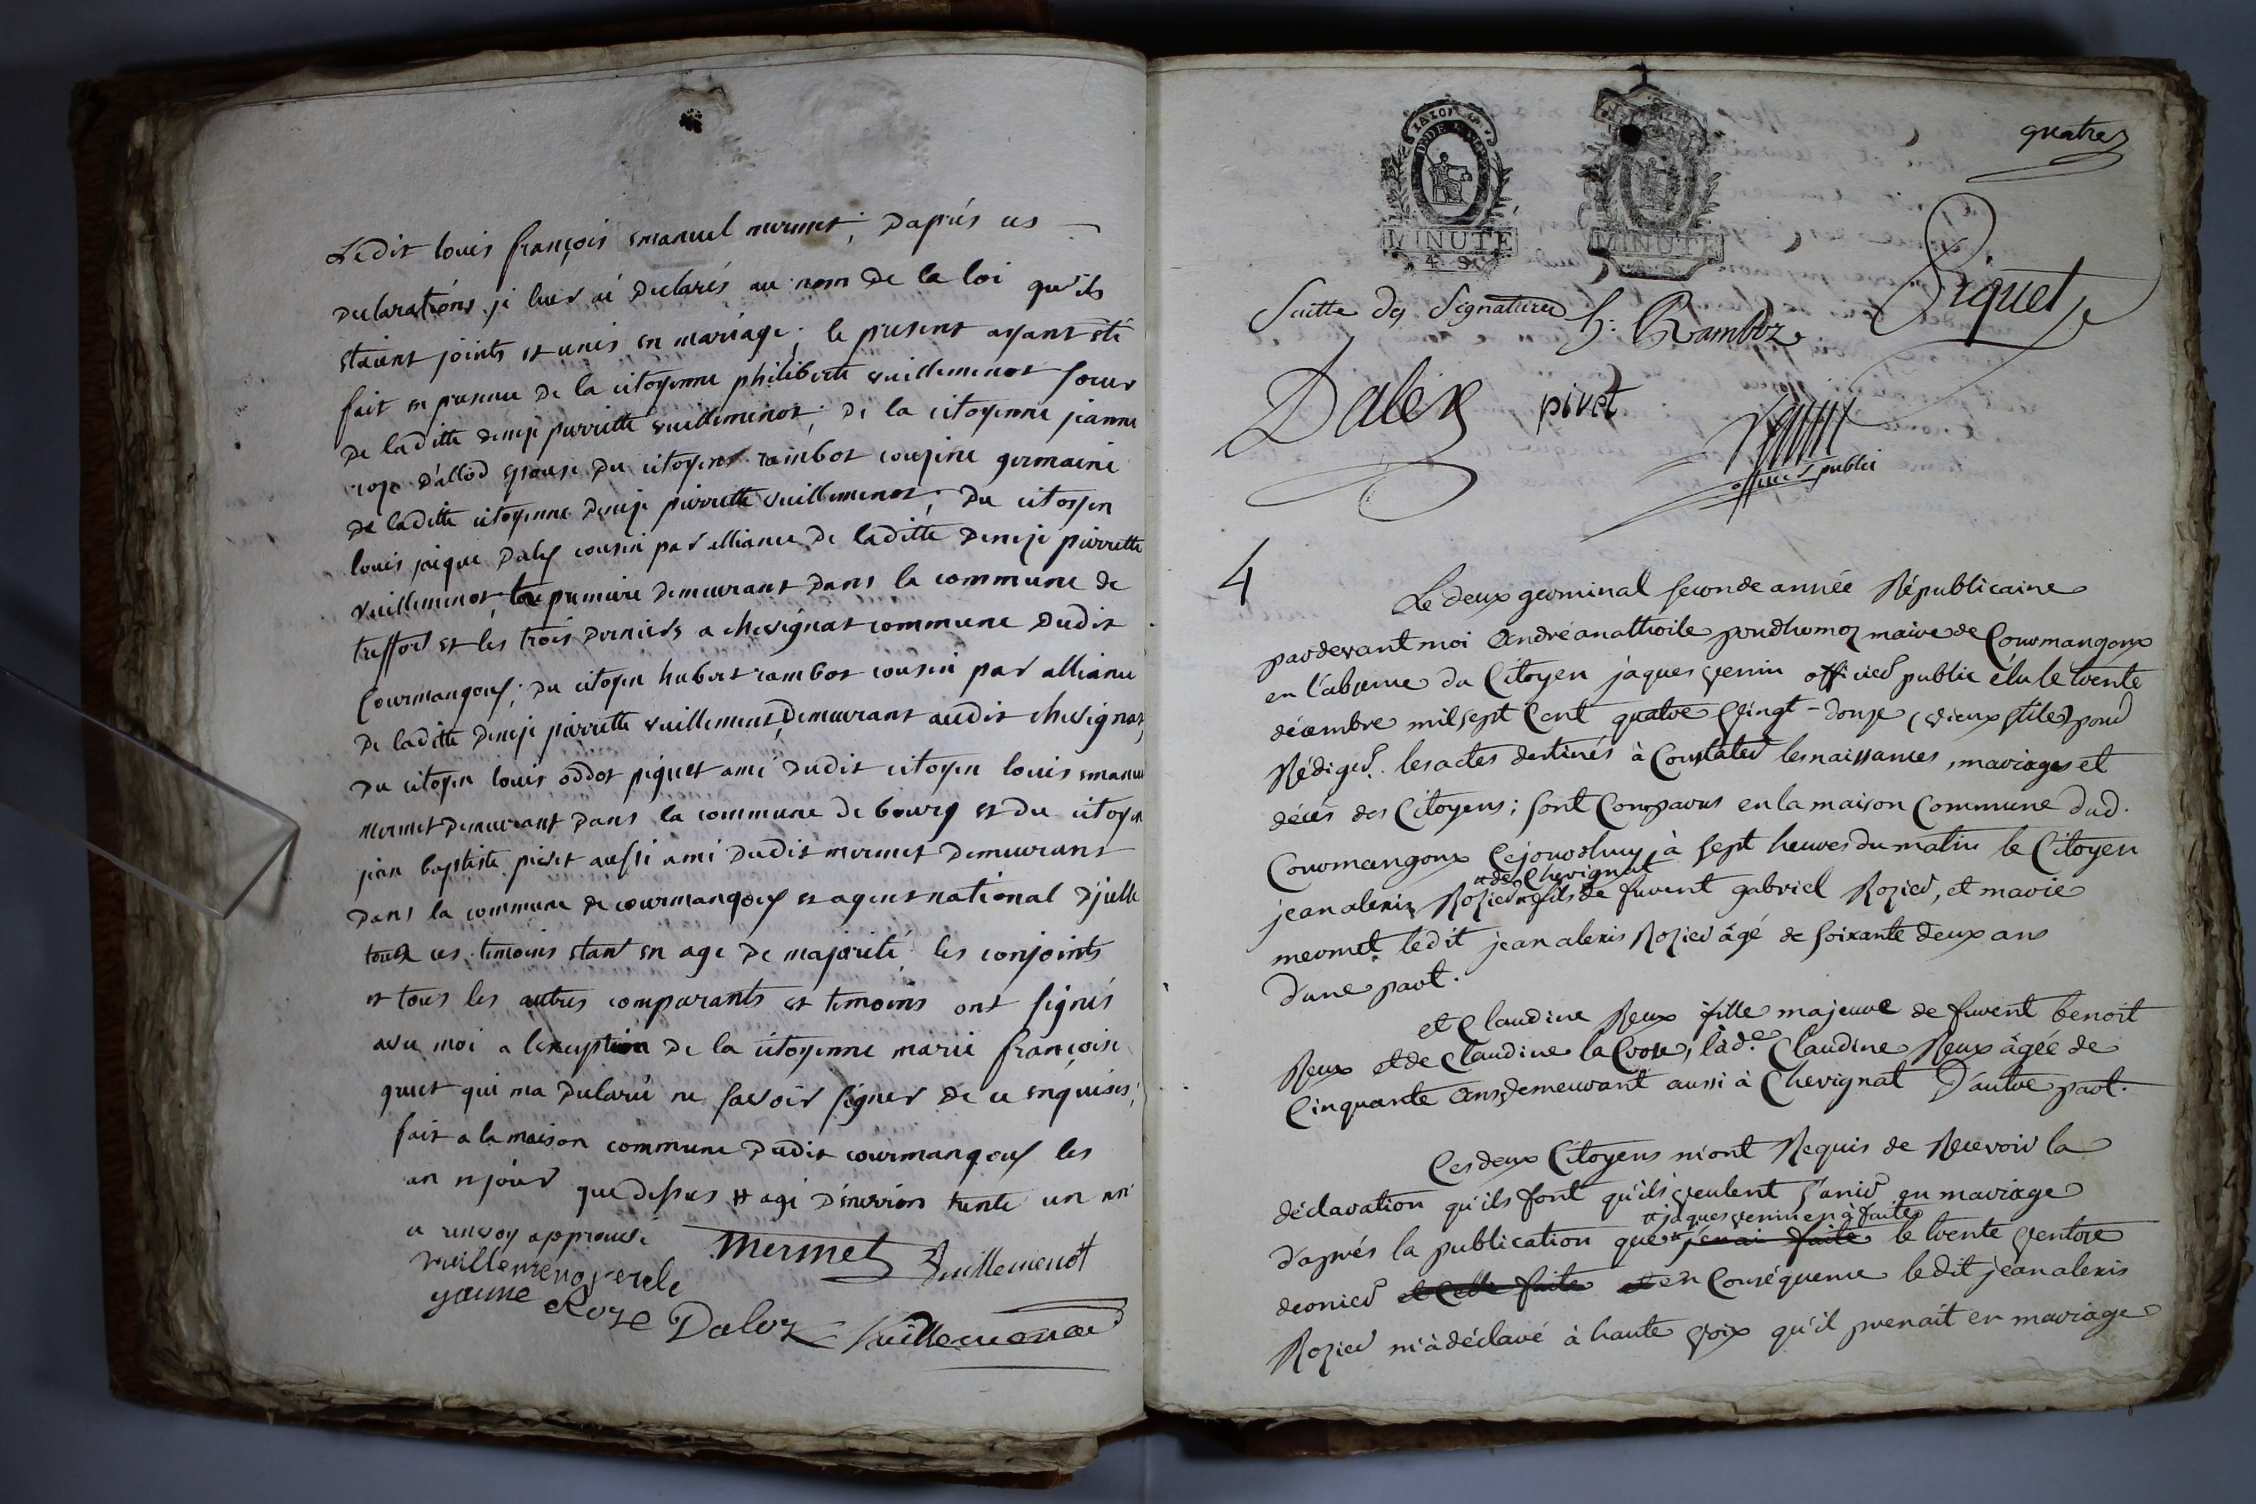 Ledit louis françois emanuel mermet; Daprés ces
Declarations je leur ai Declarés au nom De la loi qu'ils
étaient joints et unis en mariage; le present ayant été
fait en presence De la citoyenne philiberte vuillemenot soeur
De laditte denise pierrette vuillemenot; De la citoyenne jeanne
rose d'allod epouse Du citoyen rambot cousine germaine
De laditte citoyenne Denise pierrette vuillemenot; Du citoyen
louis jaique Dalex cousin par alliance De laditte Denise pierrette
vuillemenot, la premiere Demeurant Dans la commune de
treffort et les trois Derniers a chevignat commune Dudit
Courmangoux; Du citoyen hubert rambot cousin par alliance
De laditte Denise pierrette vuillemenot, Demeurant audit chevignat,
Du citoyen louis oddot piquet ami Dudit citoyen louis emanuel
mermet Demeurant Dans la commune De bourg et Du citoyen
jean baptiste pivet aussi ami Dudit mermet Demeurant
Dans la commune de courmangoux et agent national D'icelle
tous ces temoins etant en age De majorité les conjoints
et tous les autres comparants et temoins ont signés
avec moi a l'exception De la citoyenne marie françoise
qui ma Declaré ne savoir signer De ce enquise,
fait a la maison commune Dudit courmangoux les
an et jour que Dessus # agé D'environ trente un ans
a renvoy approuvé
Mermet Vuillemenot
Roze Daloz Vuillemenot
quatre
MINUTE
4. S.
MINUTE
Suitte des Signatures h: Ramboz Piquet
Dalex pivet
officier public
4
Le deux germinal seconde année Républicaine
pardevant moi André anathoile prudhomoz maire de Courmangoux
en l'absence du Citoyen jaques venin officier public élu le trente
décembre mil sept Cent quatre vingt-douze (vieux stile) pour
Rédiger les actes destinés à Constater les naissances, mariages et
décés des Citoyens; sont Comparus en la maison Commune dud.
Courmangoux Cejourdhuy à sept heures du matin le Citoyen
# de Chevignat
jean alexis Rozier # fils de furent gabriel Rozier, et marie
mermet, ledit jean alexis Rozier âgé de soixante deux ans
d'une part.
et Claudine Reux fille majeure de furent benoit
Reux et de Claudine la Croix, lad.e Claudine Reux âgée de
Cinquante ans demeurant aussi à Chevignat D'autre part.
Ces deux Citoyens m'ont Requis de Recevoir la
déclaration qu'ils font qu'ils veulent s'unir en mariage
# jaques venin en à faite
d'aprés la publication que # j'en ai faite le trente ventose
dernier et Celle faite et en Conséquence ledit jean alexis
Rozier m'à déclaré à haute voix qu'il prenait en mariage